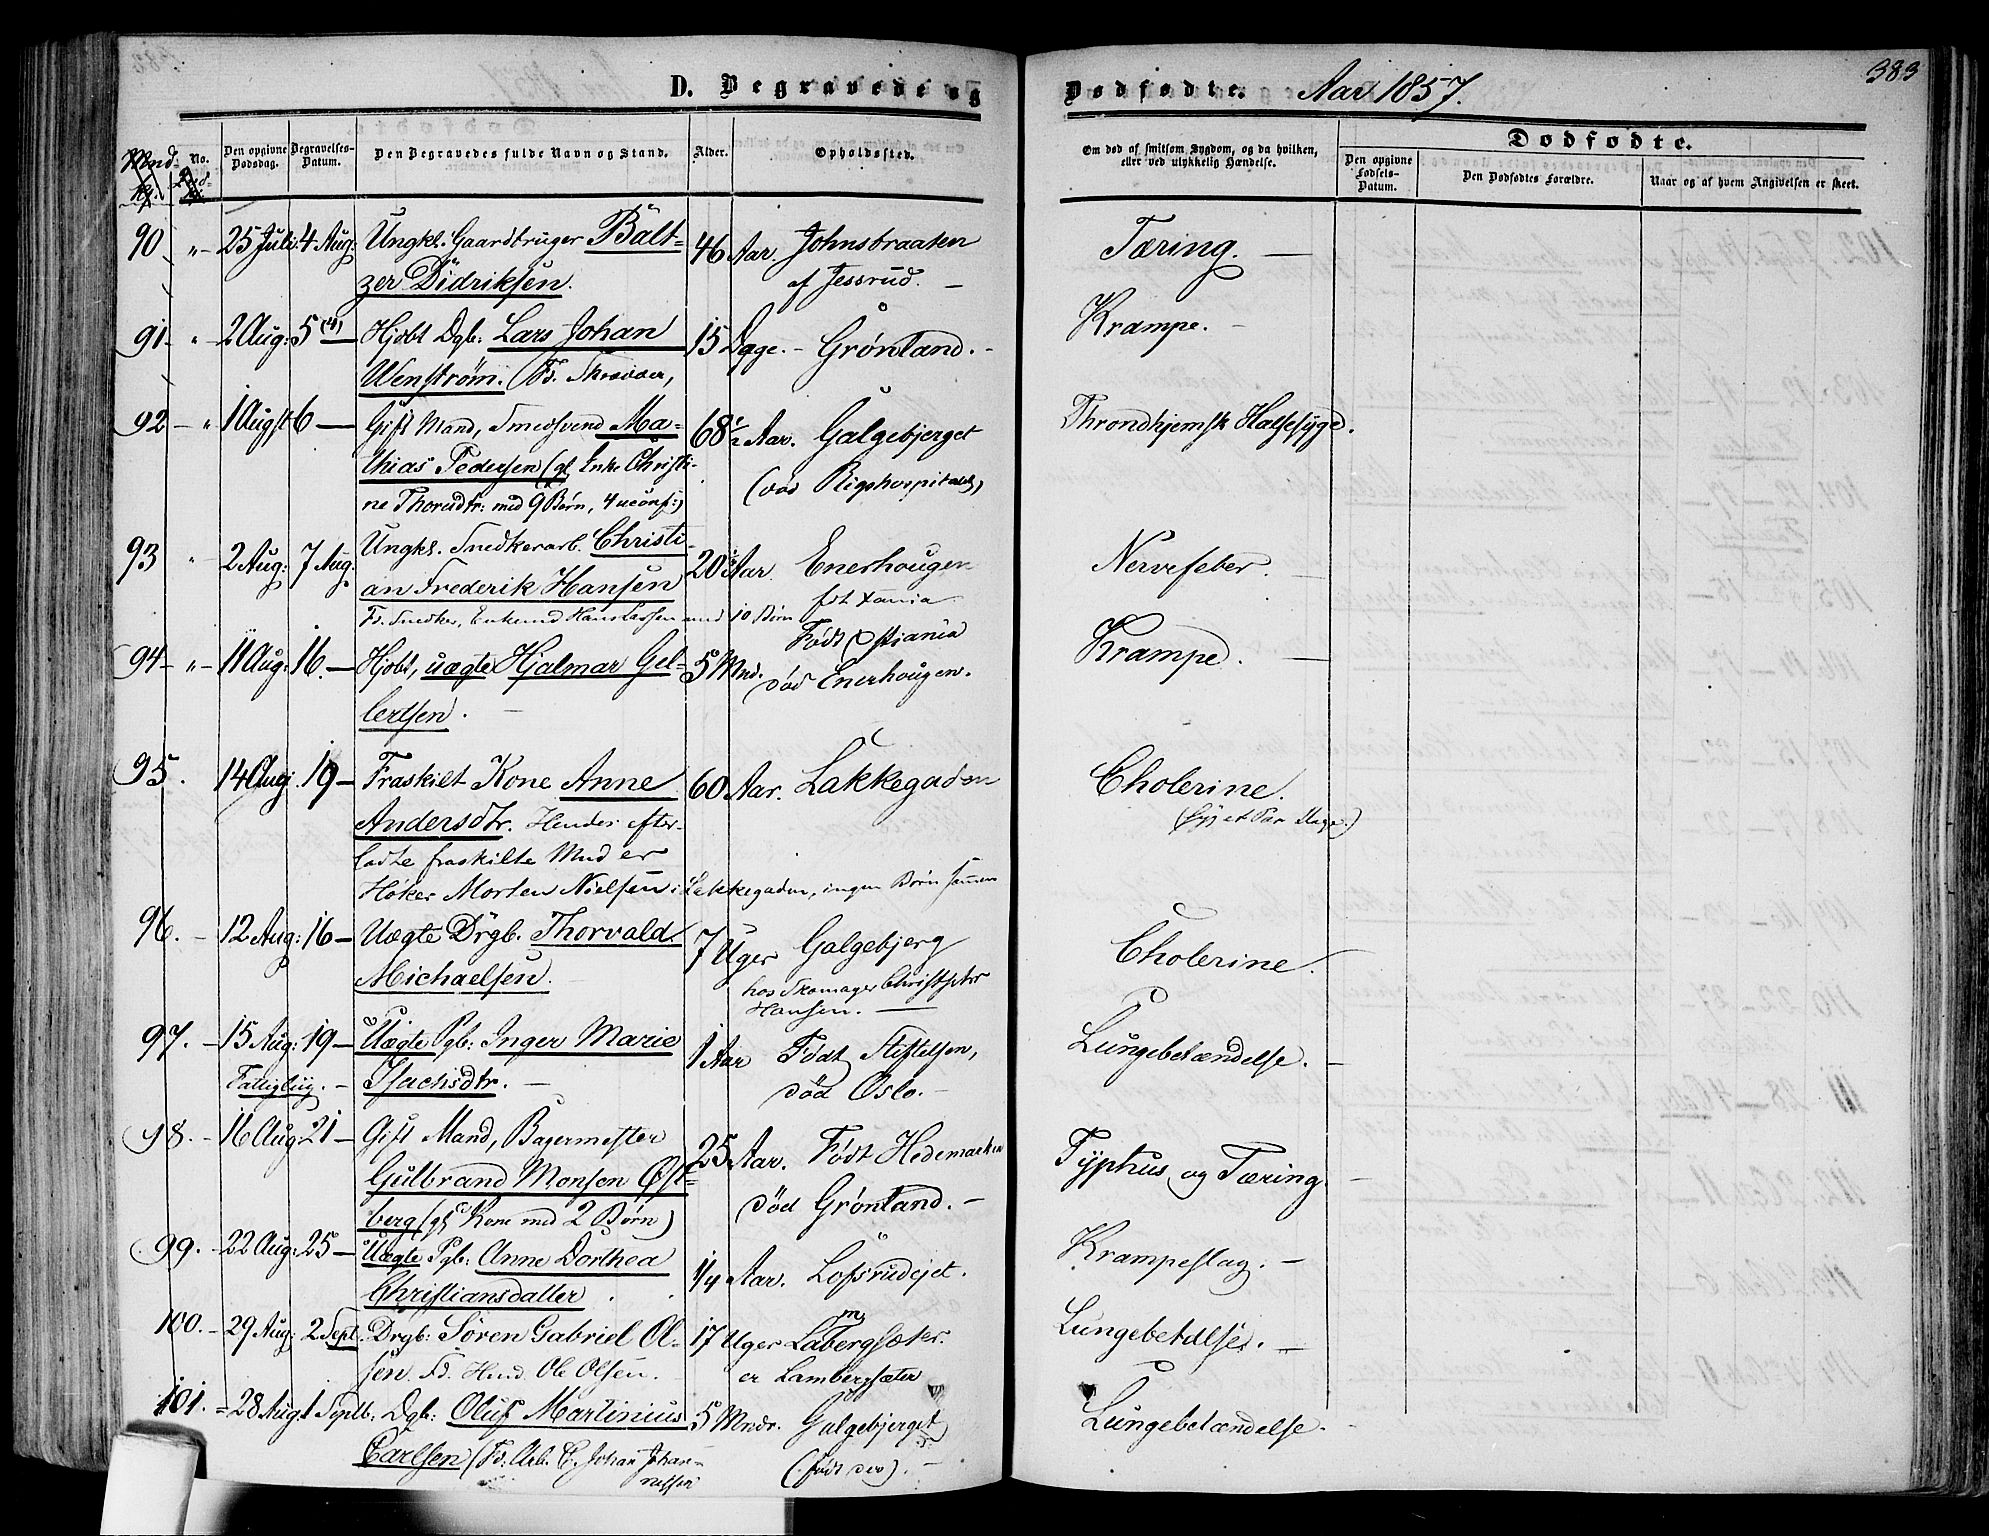 D. Begravede og
Dødfødte. Aar 1857.
383
No.
Den opgivne Dødsdag.
Begravelses-Datum.
Den Begravedes fulde Navn og Stand.
Alder.
Opholdssted.
Om død af smitsom Sygdom, og da hvilken, eller ved ulykkelig Hændelse.
Dødfødte.
Den opgivne Fødsels-Datum.
Den Dødfødtes Forældre.
Naar og af hvem Angivelsen er skeet.
90 " 25 Juli 4 Aug: Ungkl. Gaardbruger Balt- 46 Aar. Johnsbraaten Tæring. —
zer Didriksen. af Jessrud. —
91 - " 2 Aug: 5 (4) — Hjobt Dgb: Lars Johan 15 Dage. - Grønland. - Krampe. -
Wenstrøm. (Fd.
92 - " 1 Augst 6 — Gift Mand, Smedsvend Ma- 68 1/2 Aar. Galgebjerget Throndhjemsk Halsesyge.
thias Pedersen (gl Enke Christi- (ved Rigshospitalet)
ne Thorsdtr: med 9 Børn, 4 uconf:)
93 " 2 Aug: 7 Aug. Ungkl. Snedkerarb. Christi- 20 Aar Enerhougen Nervefeber. —
an Frederik Hansen fdt Xania
Fd. Snedker, Enkemd Hans Larsen med 10 Børn
94 - " - 11 Aug: 16. — Hjobt, uægte Hjalmar Gel- 5 Mnd. Født Xstiania Krampe. —
lertsen. — død Enerhougen.
95. 14 Aug. 19 — Fraskilt Kone Anne 60 Aar. Lakkegaden Cholerine.
Andersdtr. Hendes efter- (syg et Par Dage.)
ladte fraskilte Mnd er
Høker Morten Nielsen i Lakkegaden, ingen Børn sammen
96. - 12 Aug: 16 — Uægte Drgb. Thorvald 7 Uger Galgebjerg Cholerine.
Michaelsen. hos Skomager Christopher
Hansen. —
97. - 15 Aug: 19 — Uægte Pgb: Inger Marie 1 Aar Født Stiftelsen, Lungebetændelse. -
Fattiglig. - Isachsdtr. — død Oslo. -
98. - 16 Aug: 21 — Gift Mand, Bagermester 25 Aar. Født Hedemarken Typhus og Tæring. -
Gulbrand Monsen Øst- død Grønland. -
berg (gl Kone med 2 Børn)
99. - 22 Aug: 25 — Uægte Pgb: Anne Dorthea 1/4 Aar. Lofsrudejet. Krampeslag. -
Christiansdatter.
100. - 29 Aug: 2 Sept. Drgb: Søren Gabriel Ol- 17 Uger Labergsæter. Lungebetælse. —
sen. Fd. Hmd. Ole Olsen. er Lambergsæter
101. - 28 Aug: 1 Septb: Dgb: Oluf Martinius 5 Mndr. Galgebjerget Lungebetændelse. -
Carlsen (Fd. Arb. C. Johan Johan- (født der). -
nessen